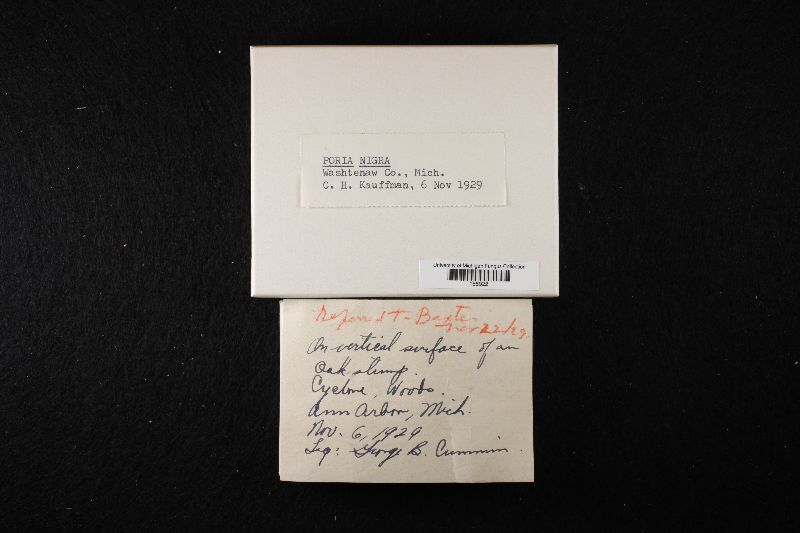 PORIA NIGRA
Washtenaw Co., Mich.
C. H. Kauffman, 6 Nov 1929
University of Michigan Fungus Collection
Referred to Baxter
Nov 22/29.
On vertical surface of an
oak stump.
Cyclone, Woods.
Ann Arbor, Mich.
Nov. 6, 1929
Leg: George B. Cummins.